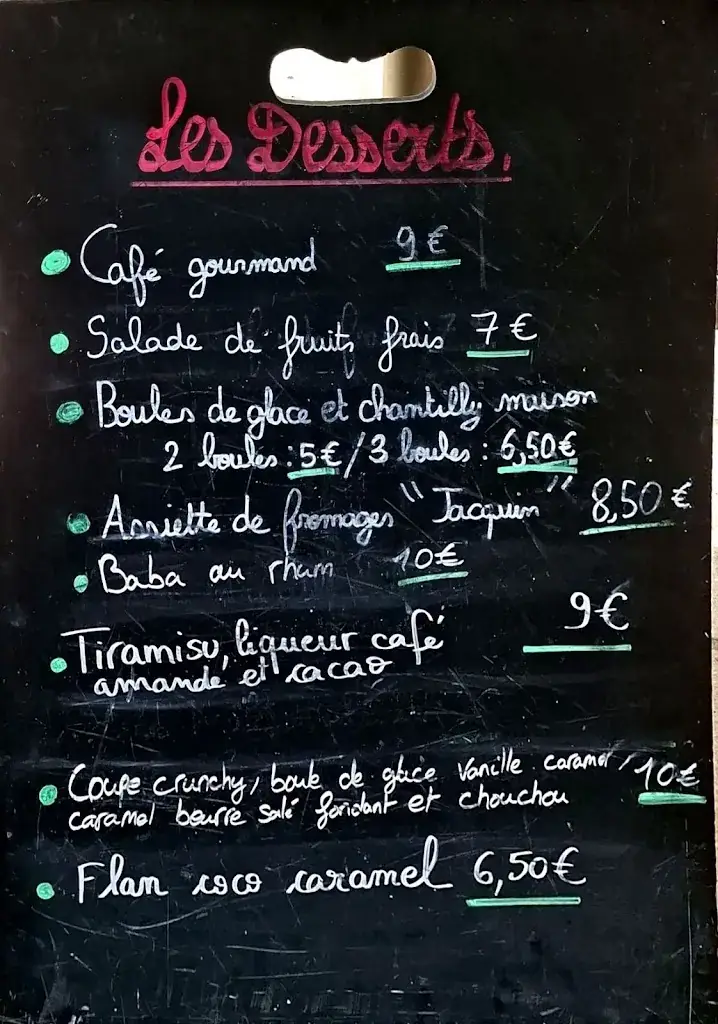 Les Desserts.
Café gourmand 9€
Salade de fruits frais 7€
Boules de glace et chantilly maison
2 boules : 5€ / 3 boules : 6,50€
Assiette de fromages "Jacquin" 8,50€
Baba au rhum 10€
Tiramisu, liqueur café 9€
amande et cacao
Coupe crunchy, boule de glace vanille caramel, 10€
caramel beurre salé fondant et chouchou
Flan coco caramel 6,50€